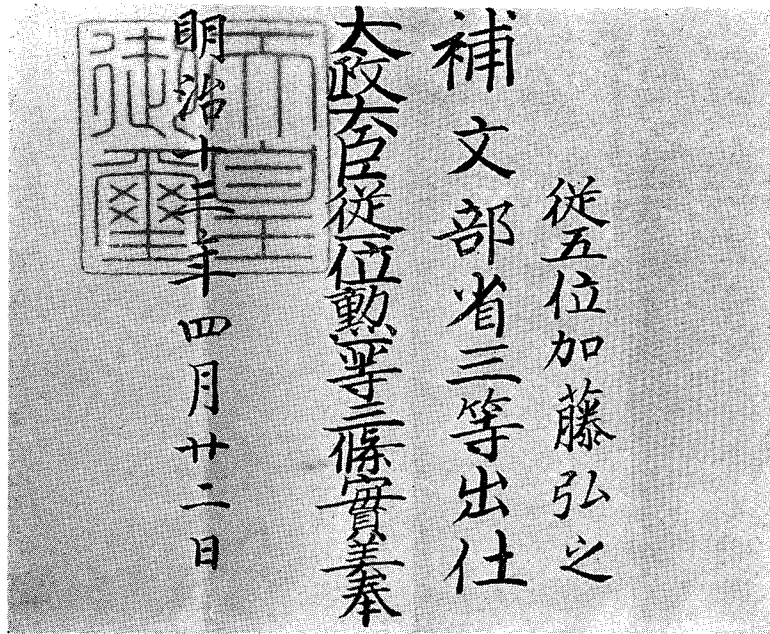 従五位加藤弘之
補文部省三等出仕
太政大臣従一位勲一等三條實美奉
明治十三年四月廿二日
天皇御璽